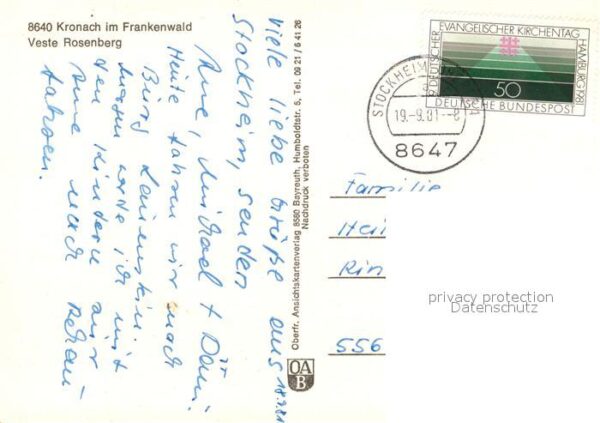 8640 Kronach im Frankenwald
Veste Rosenberg
Viele liebe Grüße aus
Stockheim, senden
Anne, Michael + Däni.
Heute fahren wir nach
Burg Lauenstein.
werde ich mit
den Kindern zur
Anne nach
fahren.
18.9.81
Oberfr. Ansichtskartenverlag 8580 Bayreuth, Humboldtstr. 5, Tel. 09 21 / 6 41 26
Nachdruck verboten
OA
B
19. DEUTSCHER EVANGELISCHER KIRCHENTAG HAMBURG 1981
50
DEUTSCHE BUNDESPOST
STOCKHEIM
19.-9.81--8
8647
Familie
Hei
Rin
556
privacy protection
Datenschutz